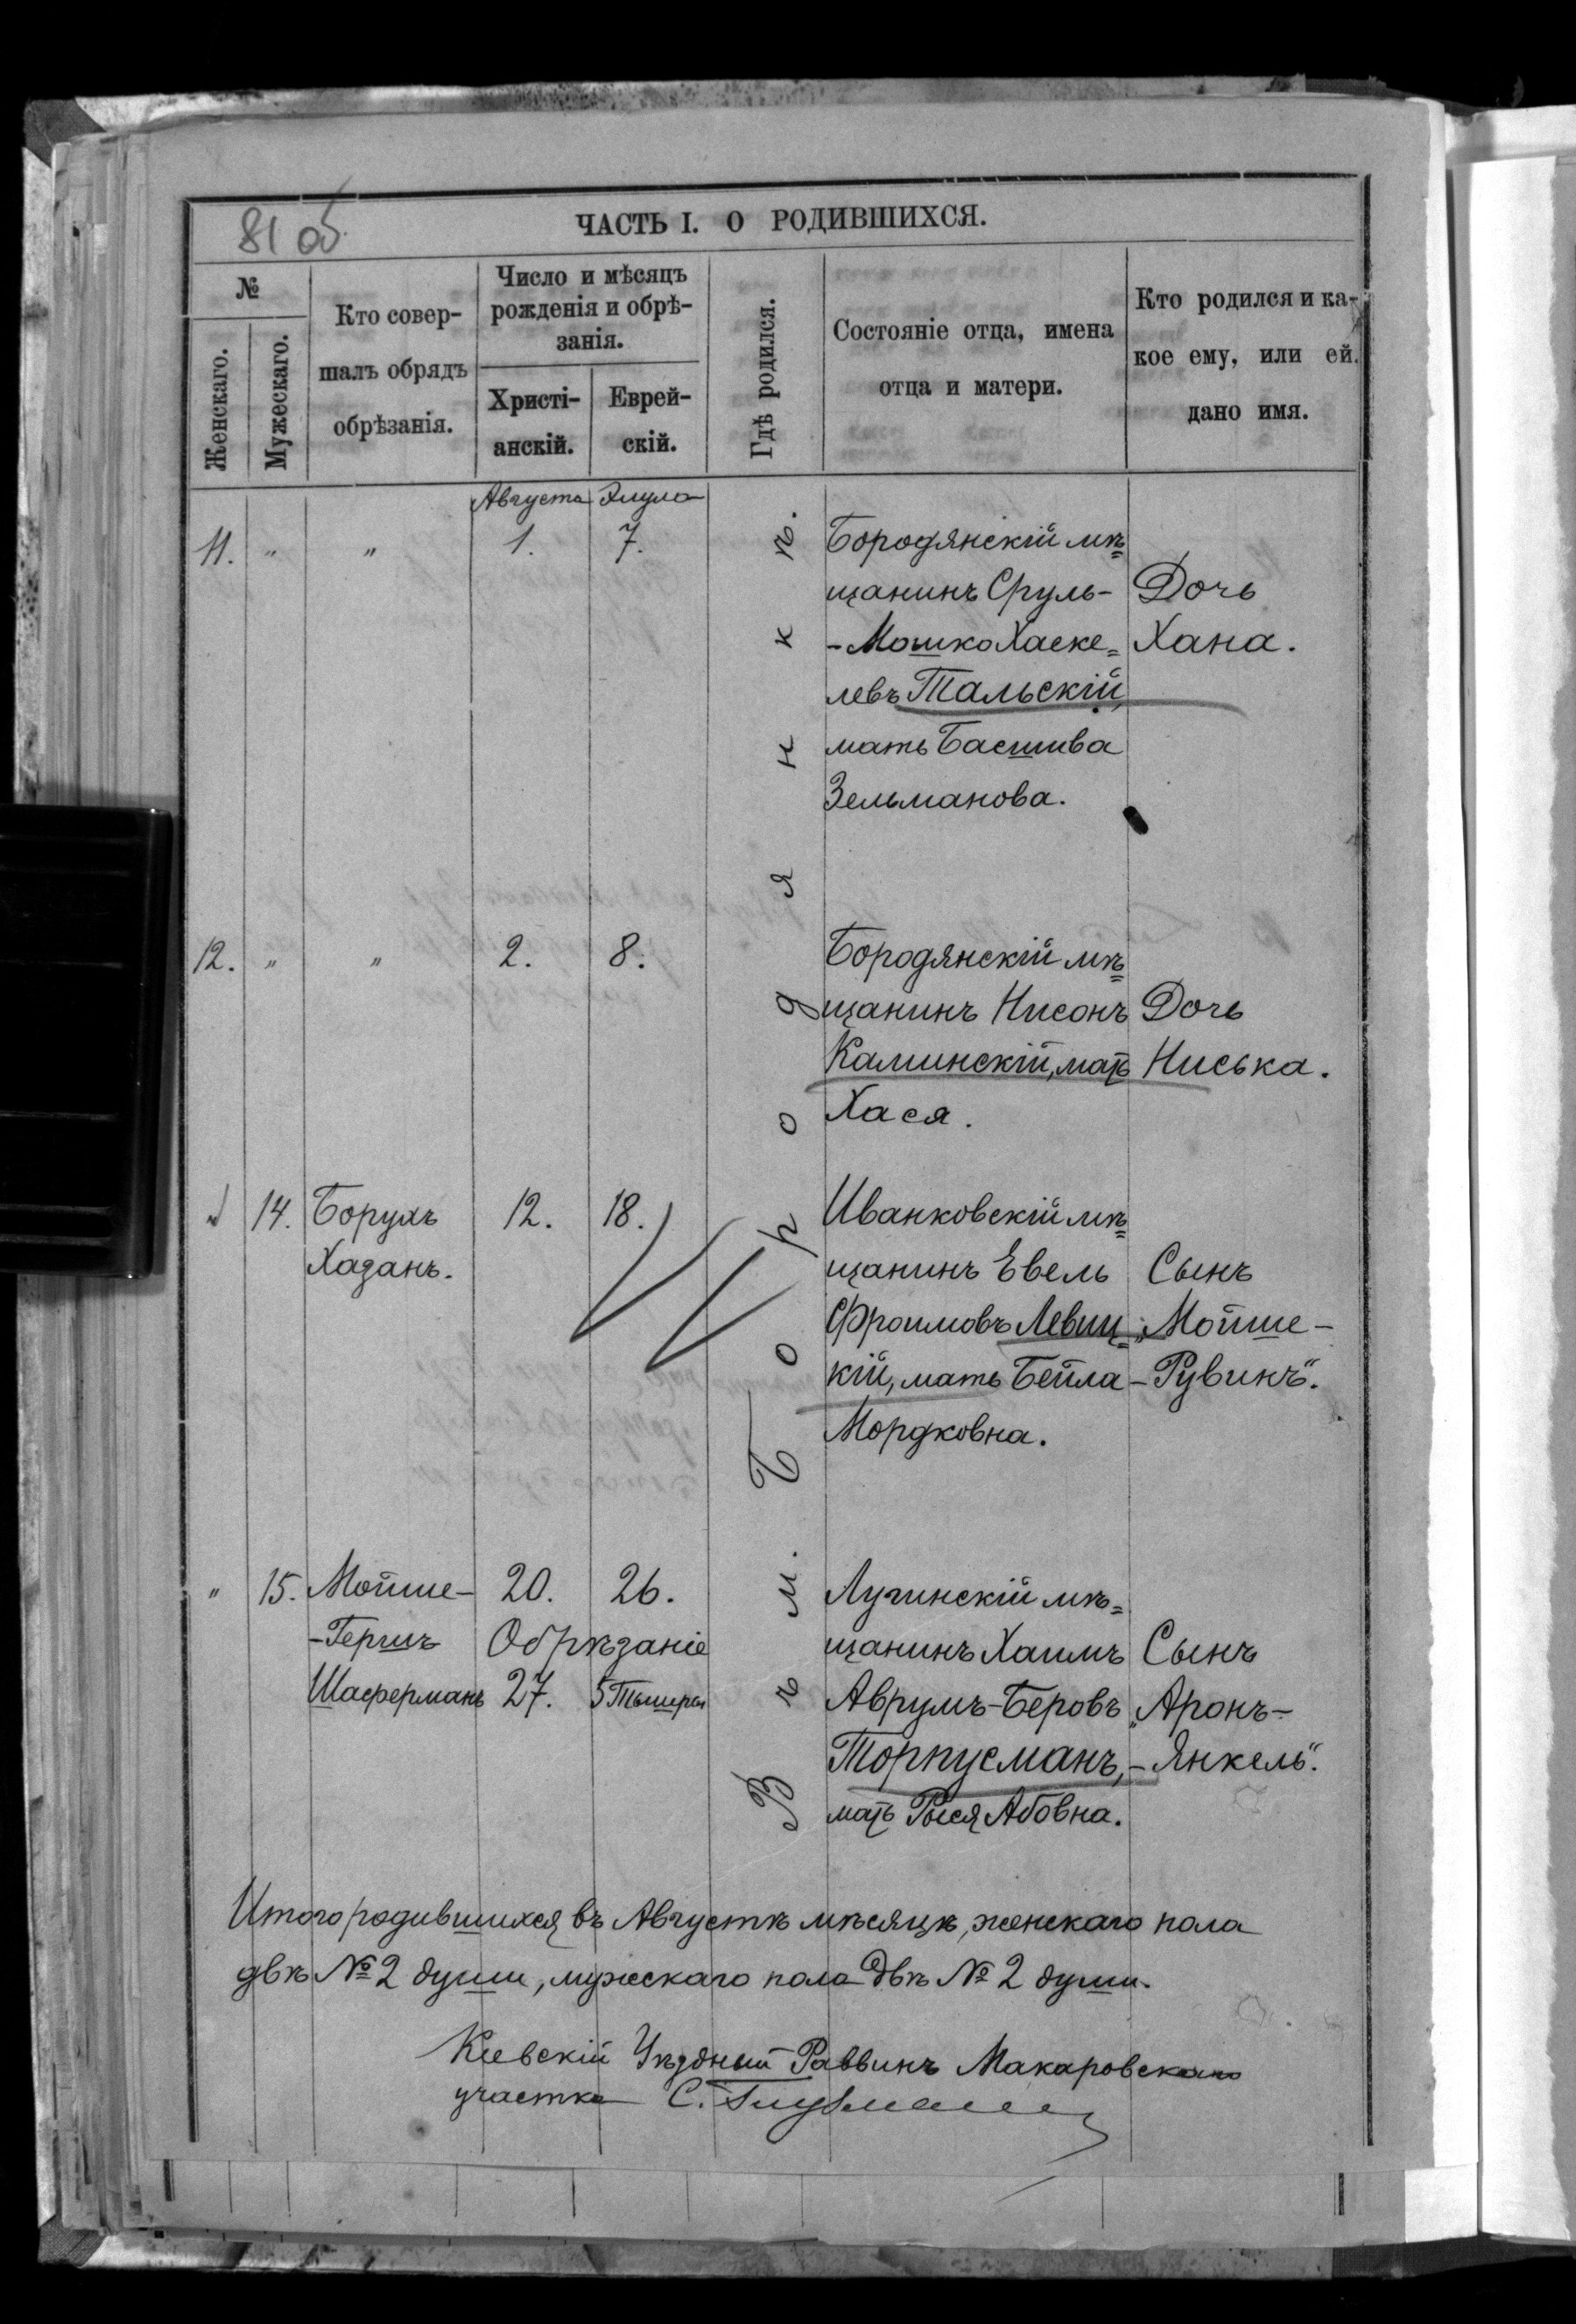 81 об.
ЧАСТЬ I. О РОДИВШИХСЯ.
№
Женскаго.
Мужескаго.
Кто совер-
шалъ обрядъ
обрѣзанія.
Число и мѣсяцъ
рожденія и обрѣ-
занія.
Христі-
анскій.
Еврей-
скій.
Гдѣ родился.
Состояніе отца, имена
отца и матери.
Кто родился и ка-
кое ему, или ей
дано имя.
Августа Элула
11. " " 1. 7.
Бородянскій мѣ=
щанинъ Сруль-
-Мошко Хаске=
левъ Тальскій,
мать Басшива
Зельманова.
Дочь
Хана.
12. " " 2. 8.
Бородянскій мѣ=
щанинъ Нисонъ
Каминскій, мать
Хася.
Дочь
Ниська.
14. Борухъ 12. 18.
Хазанъ.
Иванковскій мѣ=
щанинъ Евель
Фроимовъ Левиц=
кій, мать Бейла
Мордковна.
Сынъ
„Мойше-
-Рувинъ".
" 15. Мойше- 20. 26.
-Гершъ Обрѣзаніе
Шаферманъ 27. 5 Тышры
Лугинскій мѣ=
щанинъ Хаимъ
Аврумъ-Беровъ
Торпусманъ,
мать Рыся Абовна.
Сынъ
„Аронъ-
-Янкель".
Въ м. Бородянкѣ.
Итого родившихся въ Августѣ мѣсяцѣ, женскаго пола
двѣ № 2 души, мужескаго пола двѣ № 2 души.
Кіевскій Уѣздный Раввинъ Макаровскаго
участка С.